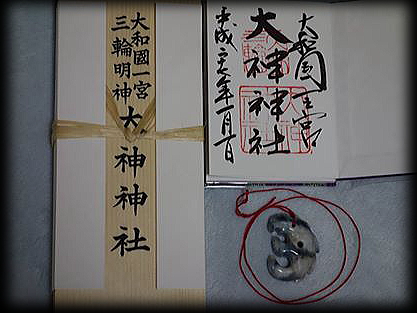 大和國一宮
三輪明神
大神神社
大和國一宮
大神神社
平成二十八年一月一日